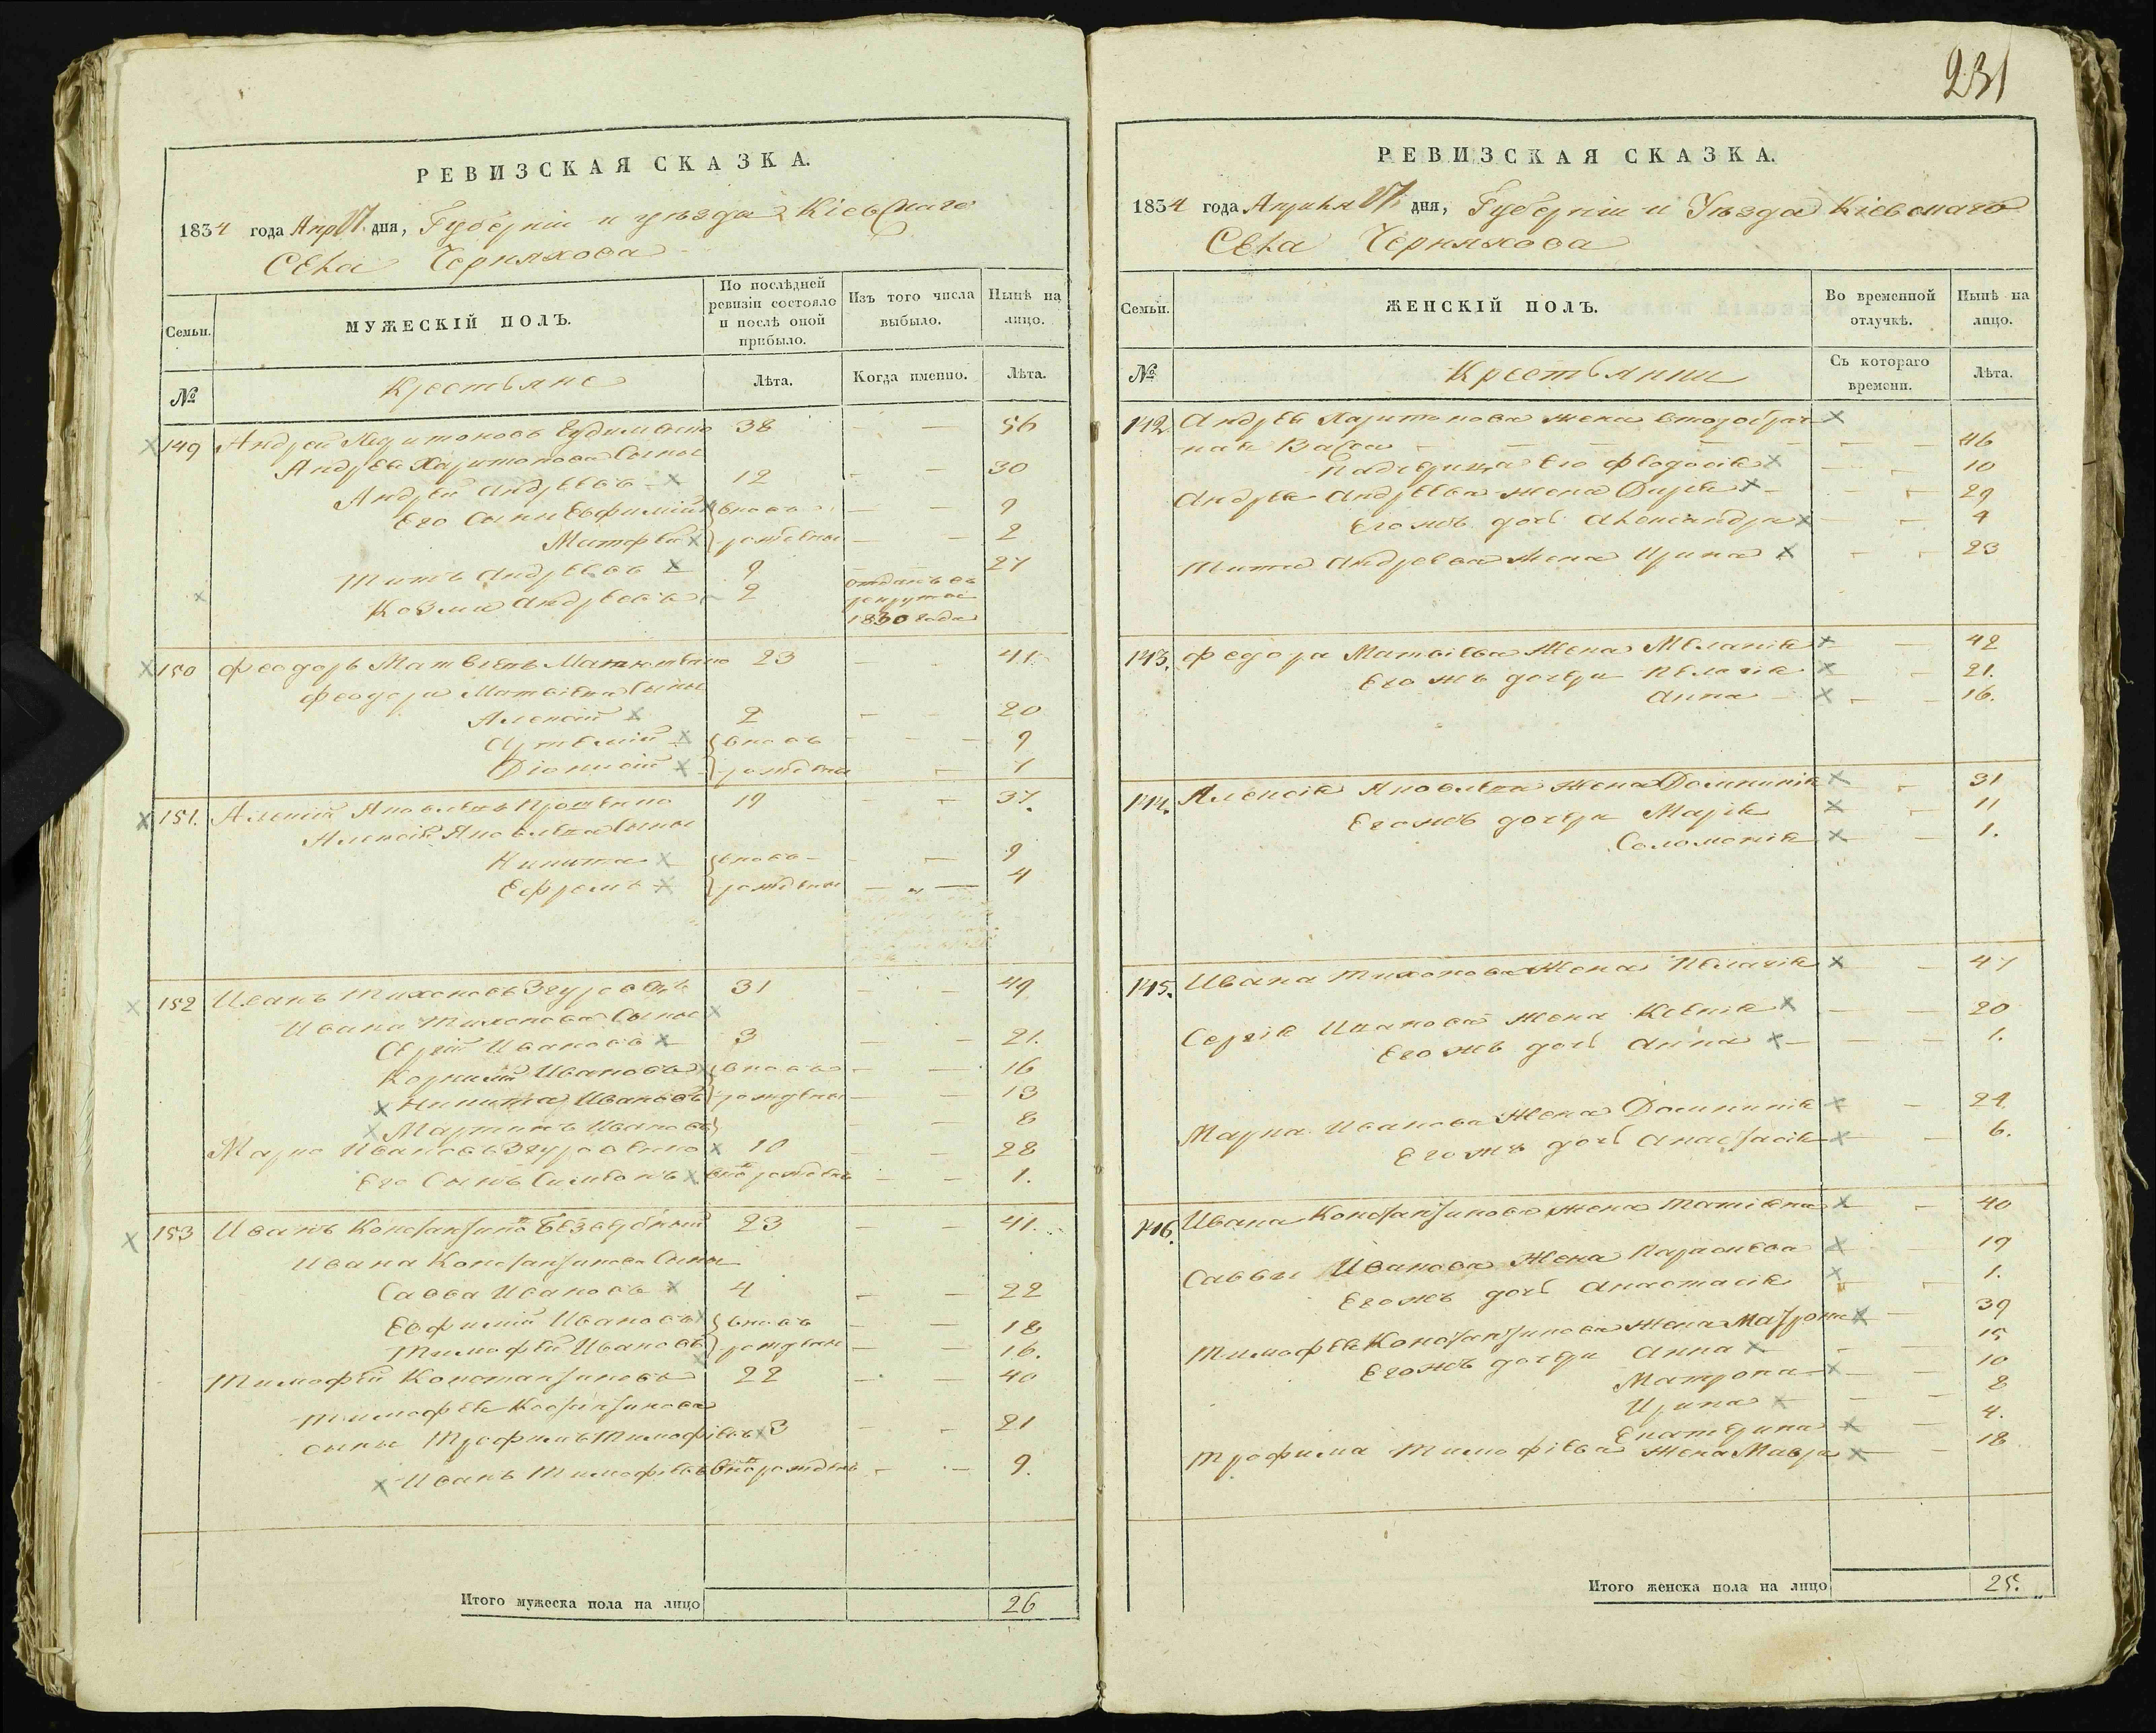 РЕВИЗСКАЯ СКАЗКА.
1834 года Апр 27 дня, Губерніи и уезда Кіевскаго
Села Черняхова
Семьи.
МУЖЕСКІЙ ПОЛЪ.
По послѣдней ревизіи состояло и послѣ оной прибыло.
Изъ того числа выбыло.
Нынѣ на лицо.
№
Крестьяне
Лѣта.
Когда именно.
Лѣта.
149 Андрей Харитоновъ 38 — — 56
Андрея Харитонова сыны
Андрей Андреевъ 12 — — 30
Его сыны Евфимій вновь — — 9
Матфей рождены — — 2
Титъ Андреевъ 9 27
Козма Андреевъ 2 отданъ въ рекруты 1830 года
150 Феодоръ Матвѣевъ 23 — 41
Феодора Матвѣева сыны
Алексій 2 — — 20
Артемій вновь — — 9
Діонисій рождены — 1
151. Алексій Яковлевъ 19 — — 37.
Алексія Яковлева сыны
Никита вновь — — 9
Ефремъ рождены — „ — 4
152 Иванъ Тихоновъ 31 — — 49
Ивана Тихонова сыны
Сергій Ивановъ 3 — — 21.
Корнилій Ивановъ вновь — — 16
Никита Ивановъ рождены — — 13
Мартинъ Ивановъ — — 8
Марко Ивановъ 10 — — 28
Его сынъ Симеонъ вно рожденъ — — 1.
153 Иванъ Константино Беззубный 23 — — 41.
Ивана Константинова сыны
Савва Ивановъ 4 — — 22
Евфимій Ивановъ вновь — — 18
Тимофей Ивановъ рождены — — 16.
Тимофей Константиновъ 22 — — 40
Тимофея Константинова
сыны Трофимъ Тимофіевъ 3 — — 21
Иванъ Тимофеевъ вно рожденъ — — 9.
Итого мужеска пола на лицо 26
231
РЕВИЗСКАЯ СКАЗКА.
1834 года Апреля 27 дня, Губерніи и Уезда Кіевскаго
Села Черняхова
Семьи.
ЖЕНСКІЙ ПОЛЪ.
Во временной отлучкѣ.
Нынѣ на лицо.
№
Крестьянки
Съ котораго времени.
Лѣта.
142 Андрея Харитонова жена второбрач-
ная Васса — — — 46
Падчерица его Феодосія — — 10
Андрея Андреева жена Дарія — — 29
Его жъ дочь Александра — — 4
Тита Андреева жена Ирина — — 23
143. Федора Матвіева жена Меланія — 42
Его жъ дочери Пелагія — 21.
Анна — — 16.
144. Алексія Яковлева жена Домникія — 31
Его жъ дочери Марія — 11
Соломонія — — 1.
145. Ивана Тихонова жена Пелагія — 47
Сергія Иванова жена Ксенія — — 20
Его жъ дочь Анна — — — 1.
Марка Иванова жена Домникія — — 24.
Его жъ дочь Анастасія — — 6.
146. Ивана Константинова жена Татіяна — — 40
Саввы Иванова жена — 19
Его жъ дочь Анастасія — 1.
Тимофея Константинова жена Матрона — 39
Его жъ дочери Анна — — 15
Матрона — — 10
Ирина — — 8
Екатерина — — 4.
Трофима Тимофіева жена Мавра — — 18
Итого женска пола на лицо 25.